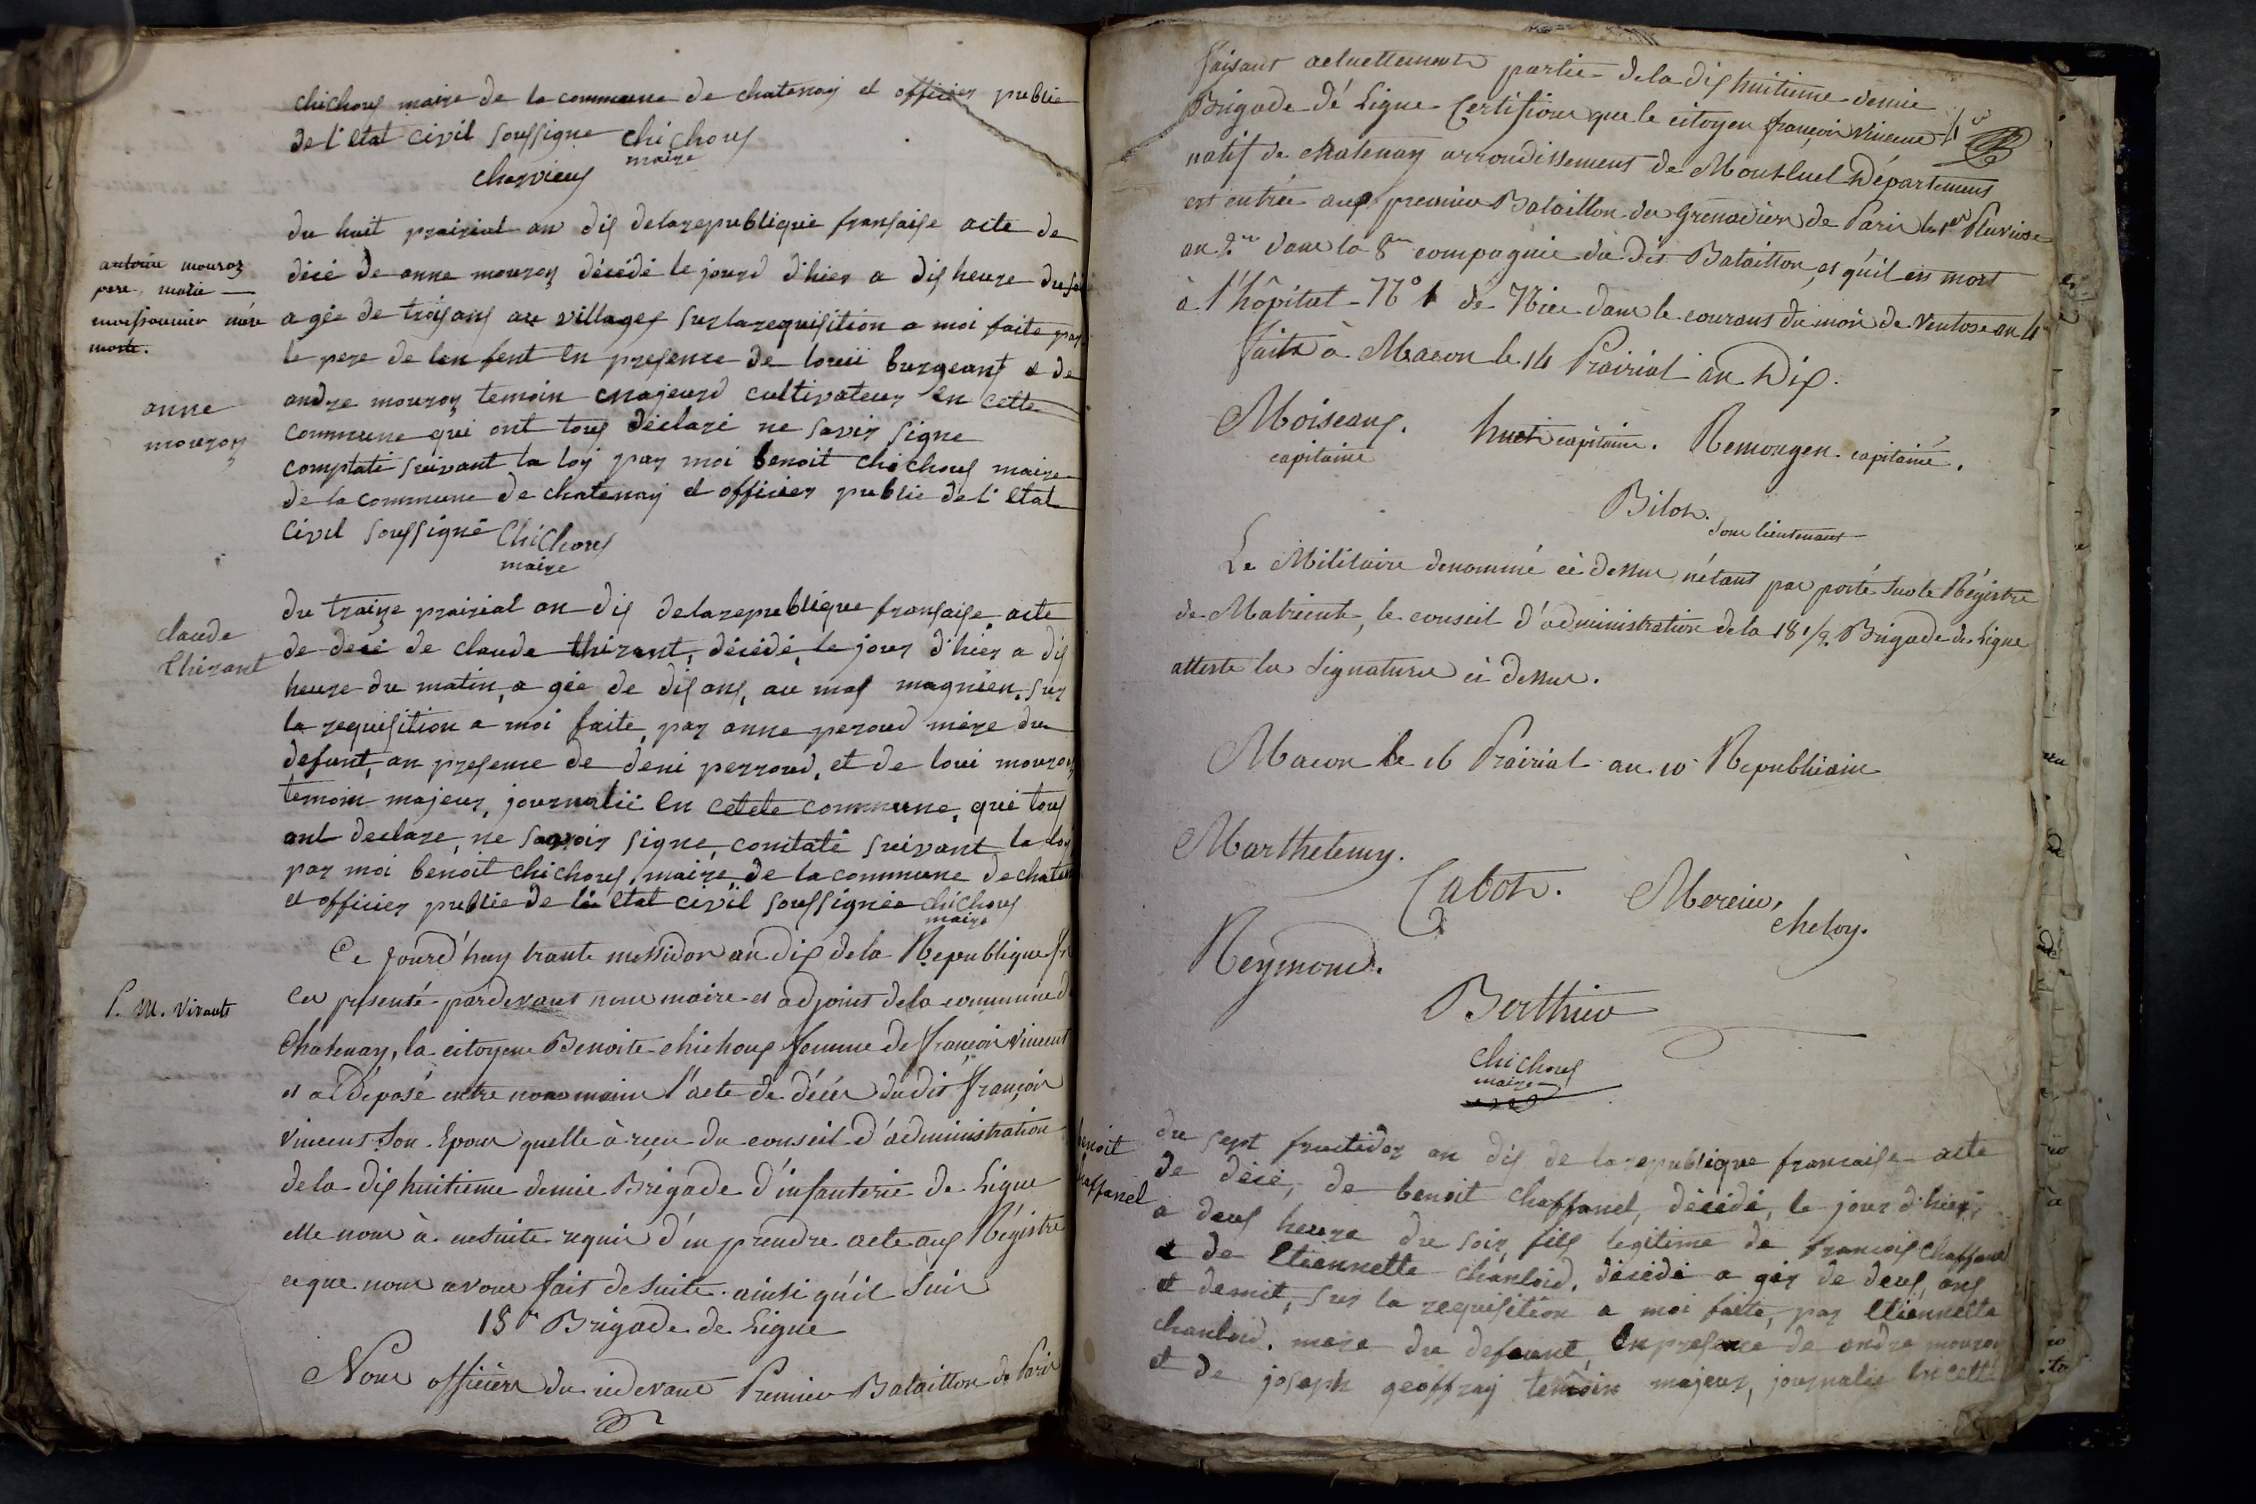 chichoux maire de la commune de chatenay et officier publie
de l'etat civil soussigne chichoux
maire
chervieux
antoine mouroz
pere, marie
moissonnier mére
morte.
anne
mouroz
du huit prairial an dix de la republique fransaise acte de
décé de anne mouroz décédé le jourd d'hier a dix heure du soi
agée de troisans au villages sur la requisition a moi faite par
le pere de len fent en presence de louii burgeant et de
andre mouroz temoin majeurd cultivateur en cette
commune qui ont tous déclaré ne savir signe
comptaté suivant la loy par moi benoit chichoux maire
de la commune de chatenay et officier publie de l'etat
civil soussigné chichoux
maire
claude
thirant
du traize prairial an dix de la republique fransaise acte
de décé de claude thirant, décédé, le jour d'hier a dix
heure du matin, a gée de dix ans, au mas magnien, sur
la requisition a moi faite, par anne peroud mère du
defunt, an presence de deni perroud, et de loui mouroz
temoin majeur, journalié en cetete commune, qui tous
ont declare, ne savoir signe, comtaté suivant la loy
par moi benoit chichoux, maire de la commune de chaten
et officier publie de l'etat civil soussignée chichoux
maire
P. M. Vivants
Ce jourd'huy trante messidor an dix de la Republique fr
Cer présenté pardevant nous maire et adjoint de la commune d
Chatenay, la citoyene Benoite chichoux femme de françois Vincent
et a Déposé entre nos mains l'acte de décés du dit françois
Vincent Son Epoux quelle à reçu du conseil d'administration
de la dix huitieme demie Brigade d'infanterie de Ligne
elle nous à ensuite requis d'en prendre acte aux Régistre
ce que nous avons fait de suite ainsi qu'il suit
18e Brigade de Ligne
Nous officiers du cidevant Premier Bataillon de Paris
faisant actuellement partie de la dix huitieme demie
Brigade dé Ligne Certifions que le citoyen françois Vincent
natif de chatenay arrondissement de Montluel Département
est entrée aux premier Bataillon des Grenadiers de Paris le 1er Pluviose
an 2me dans la 8me compagnie du dit Bataillon, et qu'il est mort
à l'hôpital N° 1 de Nice dans le courant du mois de Ventose an 4
faite à Macon le 14 Prairial an Dix.
Moiseaux. huet capitaine. Remongen capitainé.
capitaine
Bilon.
sous lieutenant
Le Militaire denommé ci dessus n'étant pas porté sur le Régistre
de Matricule, le conseil d'administration de la 18 1/2 Brigade de Ligne
atteste les Signatures ci dessus.
Macon le 16 Prairial an 10 Républicain
Marthelemy.
Cabot. Mercier,
cheloy.
Reymond.
Berthier
chichoux
maire
benoit
chaffanel
du sept fructidor an dix de la republique francaise acte
de décé, de benoit chaffanel, décédé, le jour d'hier,
a deux heure du soir, fils legitime de francois chaffanel
et de Etiennette chanloid, décédé a gér de deux, ans
et demit, sur la requisition a moi faite, par Etiennette
chanloid, mere du defeunt, en presence de andre mouroz
et de joseph geoffray temoin majeur, journalie en cette